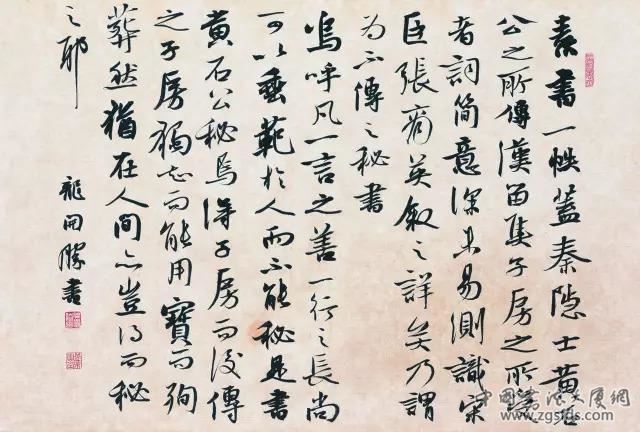 素書一帙蓋秦隐士黄石
公之所傳漢留侯子房之所
者詞简意深未易測識宋
臣張商英叙之詳矣乃謂
为不傳之秘書
嗚呼凡一言之善一行之長尚
可以垂範於人而不能秘是書
黄石公秘焉得子房而後傳
之子房獨知而能用寶而殉
葬然猶在人間亦豈得而秘
之耶
龍開勝書
中国书法大厦网
www.zgsfds.com